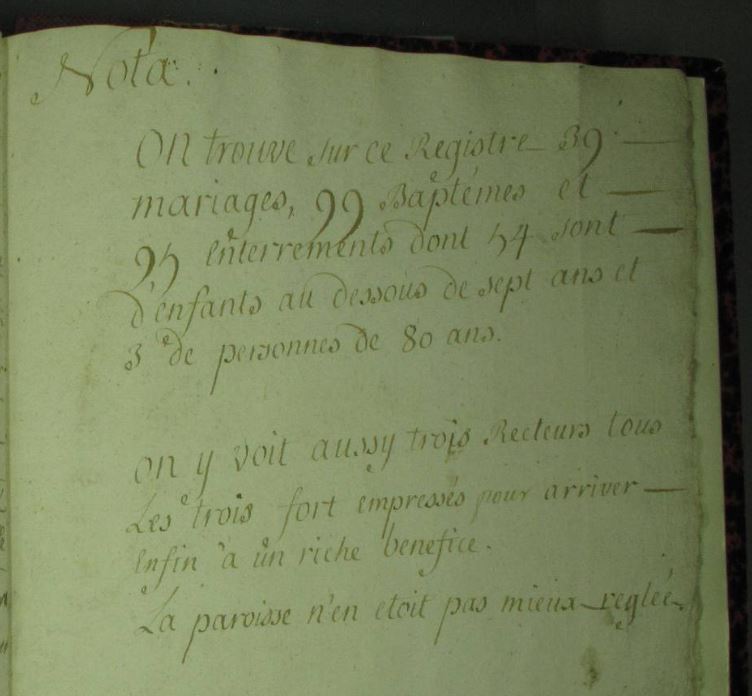 Nota.
On trouve sur ce Registre 39
mariages, 99 Baptémes et
95 enterrements dont 54 sont
d'enfants au dessous de sept ans et
3 de personnes de 80 ans.
on y voit aussy trois Recteurs tous
Les trois fort empressés pour arriver
enfin à un riche benefice.
La paroisse n'en etoit pas mieux reglée.